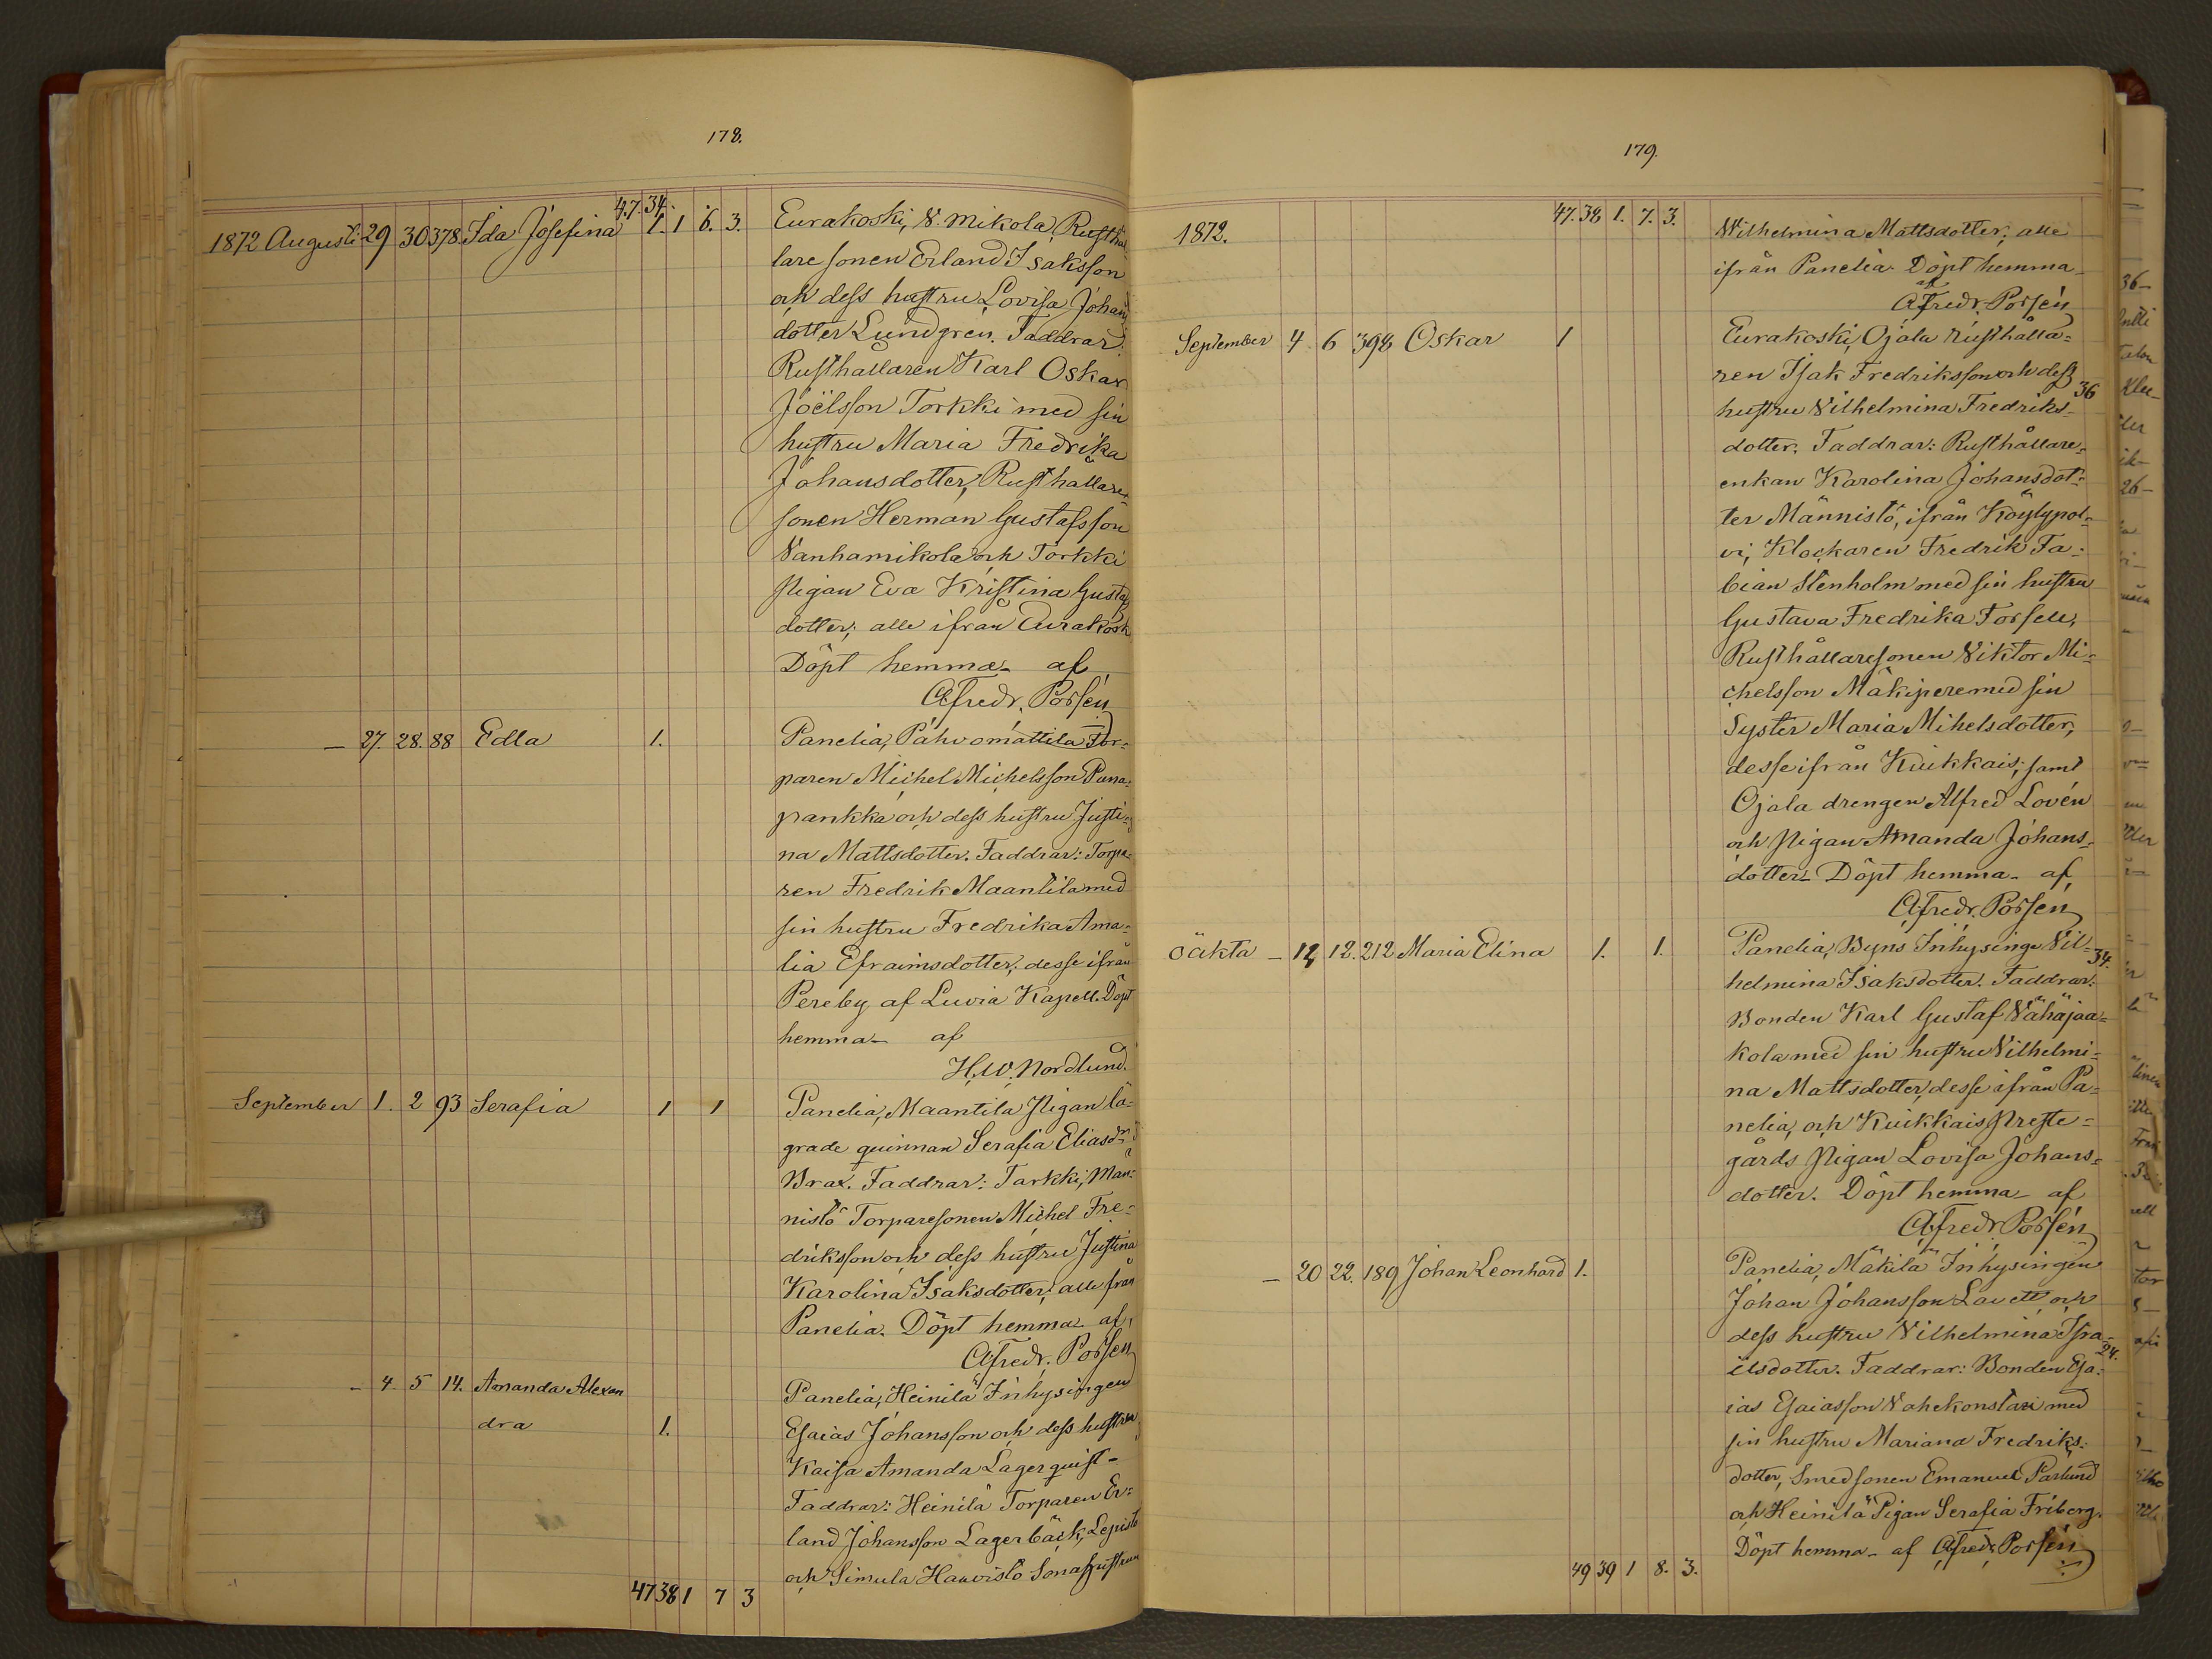 178.
47. 34.
1872 Augusti 29 30 378. Ida Josefina 1. 1 6. 3. Eurakoski, V. Mikola, Rusthål
lare sonen Erland Isaksson
och dess hustru Lovisa Johans
dotter Lundgren. Faddrar:
Rusthållaren Karl Oskar
Joëlsson Torkki med sin
hustru Maria Fredrika
Johansdotter, Rusthållare-
sonen Herman Gustafsson
Vanhamikola och Torkki
Pigan Eva Kristina Gustafs
dotter; alle ifrån Eurakosk
Döpt hemma - af
A. Fredr. Porsén
— 27. 28. 88 Edla 1. Panelia, Pahvomattila Tor-
paren Michel Michelsson Puna-
pankka och dess hustru Justi-
na Mattsdotter. Faddrar: Torpa-
ren Fredrik Maantila med
sin hustru Fredrika Ama-
lia Efraimsdotter; desse ifrån
Pereby af Luvia Kapell. Döpt
hemma - af
H. W. Nordlund.
September 1. 2 93 Serafia 1 1 Panelia, Maantila Pigan lä-
grade quinnan Serafia Eliasdr
Brax. Faddrar: Tarkki, Män-
nistö Torparesonen Michel Fre-
driksson och dess hustru Justina
Karolina Isaksdotter; alle från
Panelia. Döpt hemma af
A. Fredr. Porsén
— 4. 5 14. Amanda Alexan Panelia, Heinilä Inhysingen
dra 1. Esaias Johansson och dess hustru
Kaisa Amanda Lagerquist -
Faddrar: Heinilä Torparen Er-
land Johansson Lagerbäck, Lepistö
och Simula Hanvistö Sonahustrun
47 38 1 7 3
179.
47. 38 1. 7. 3.
1872. Wilhelmina Mattsdotter; alle
ifrån Panelia. Döpt hemma -
af
A. Fredr. Porsén
September 4 6 398 Oskar 1 Eurakoski, Ojala rusthålla-
ren Isak Fredriksson och dess
36
hustru Vilhelmina Fredriks-
dotter. Faddrar: Rusthållare-
enkan Karolina Johansdot-
ter Männistö, ifrån Köylypol-
vi, Klockaren Fredrik Fa-
bian Stenholm med sin hustru
Gustava Fredrika Forsell,
Rusthållaresonen Viktor Mi-
chelsson Mäkipere med sin
Syster Maria Mihelsdotter,
desse ifrån Kiukkais; samt
Ojala drengen Alfred Lovén
och Pigan Amanda Johans-
dotter - Döpt hemma - af
A. Fredr. Porsén
Oäkta — 12. 212 Maria Elina 1. 1. Panelia, Byns Inhysinge Vil-
34.
helmina Isaksdotter. Faddrar:
Bonden Karl Gustaf Vähäjaa-
kola med sin hustru Vilhelmi-
na Mattsdotter, desse ifrån Pa-
nelia, och Kiukkais Preste-
gårds Pigan Lovisa Johans-
dotter. Döpt hemma - af
A. Fredr. Porsén
— 20 22. 189 Johan Leonhard 1. Panelia, Mäkilä Inhysingen
Johan Johansson Lavett och
dess hustru Vilhelmina Isra-
24.
ëlsdotter. Faddrar: Bonden Esa-
ias Esaiasson Vahekonstari med
sin hustru Mariana Fredriks-
dotter, Smedsonen Emanuel Parlund
och Heinilä Pigan Serafia Friberg.
Döpt hemma - af A. Fredr. Porsén
49 39 1 8. 3.